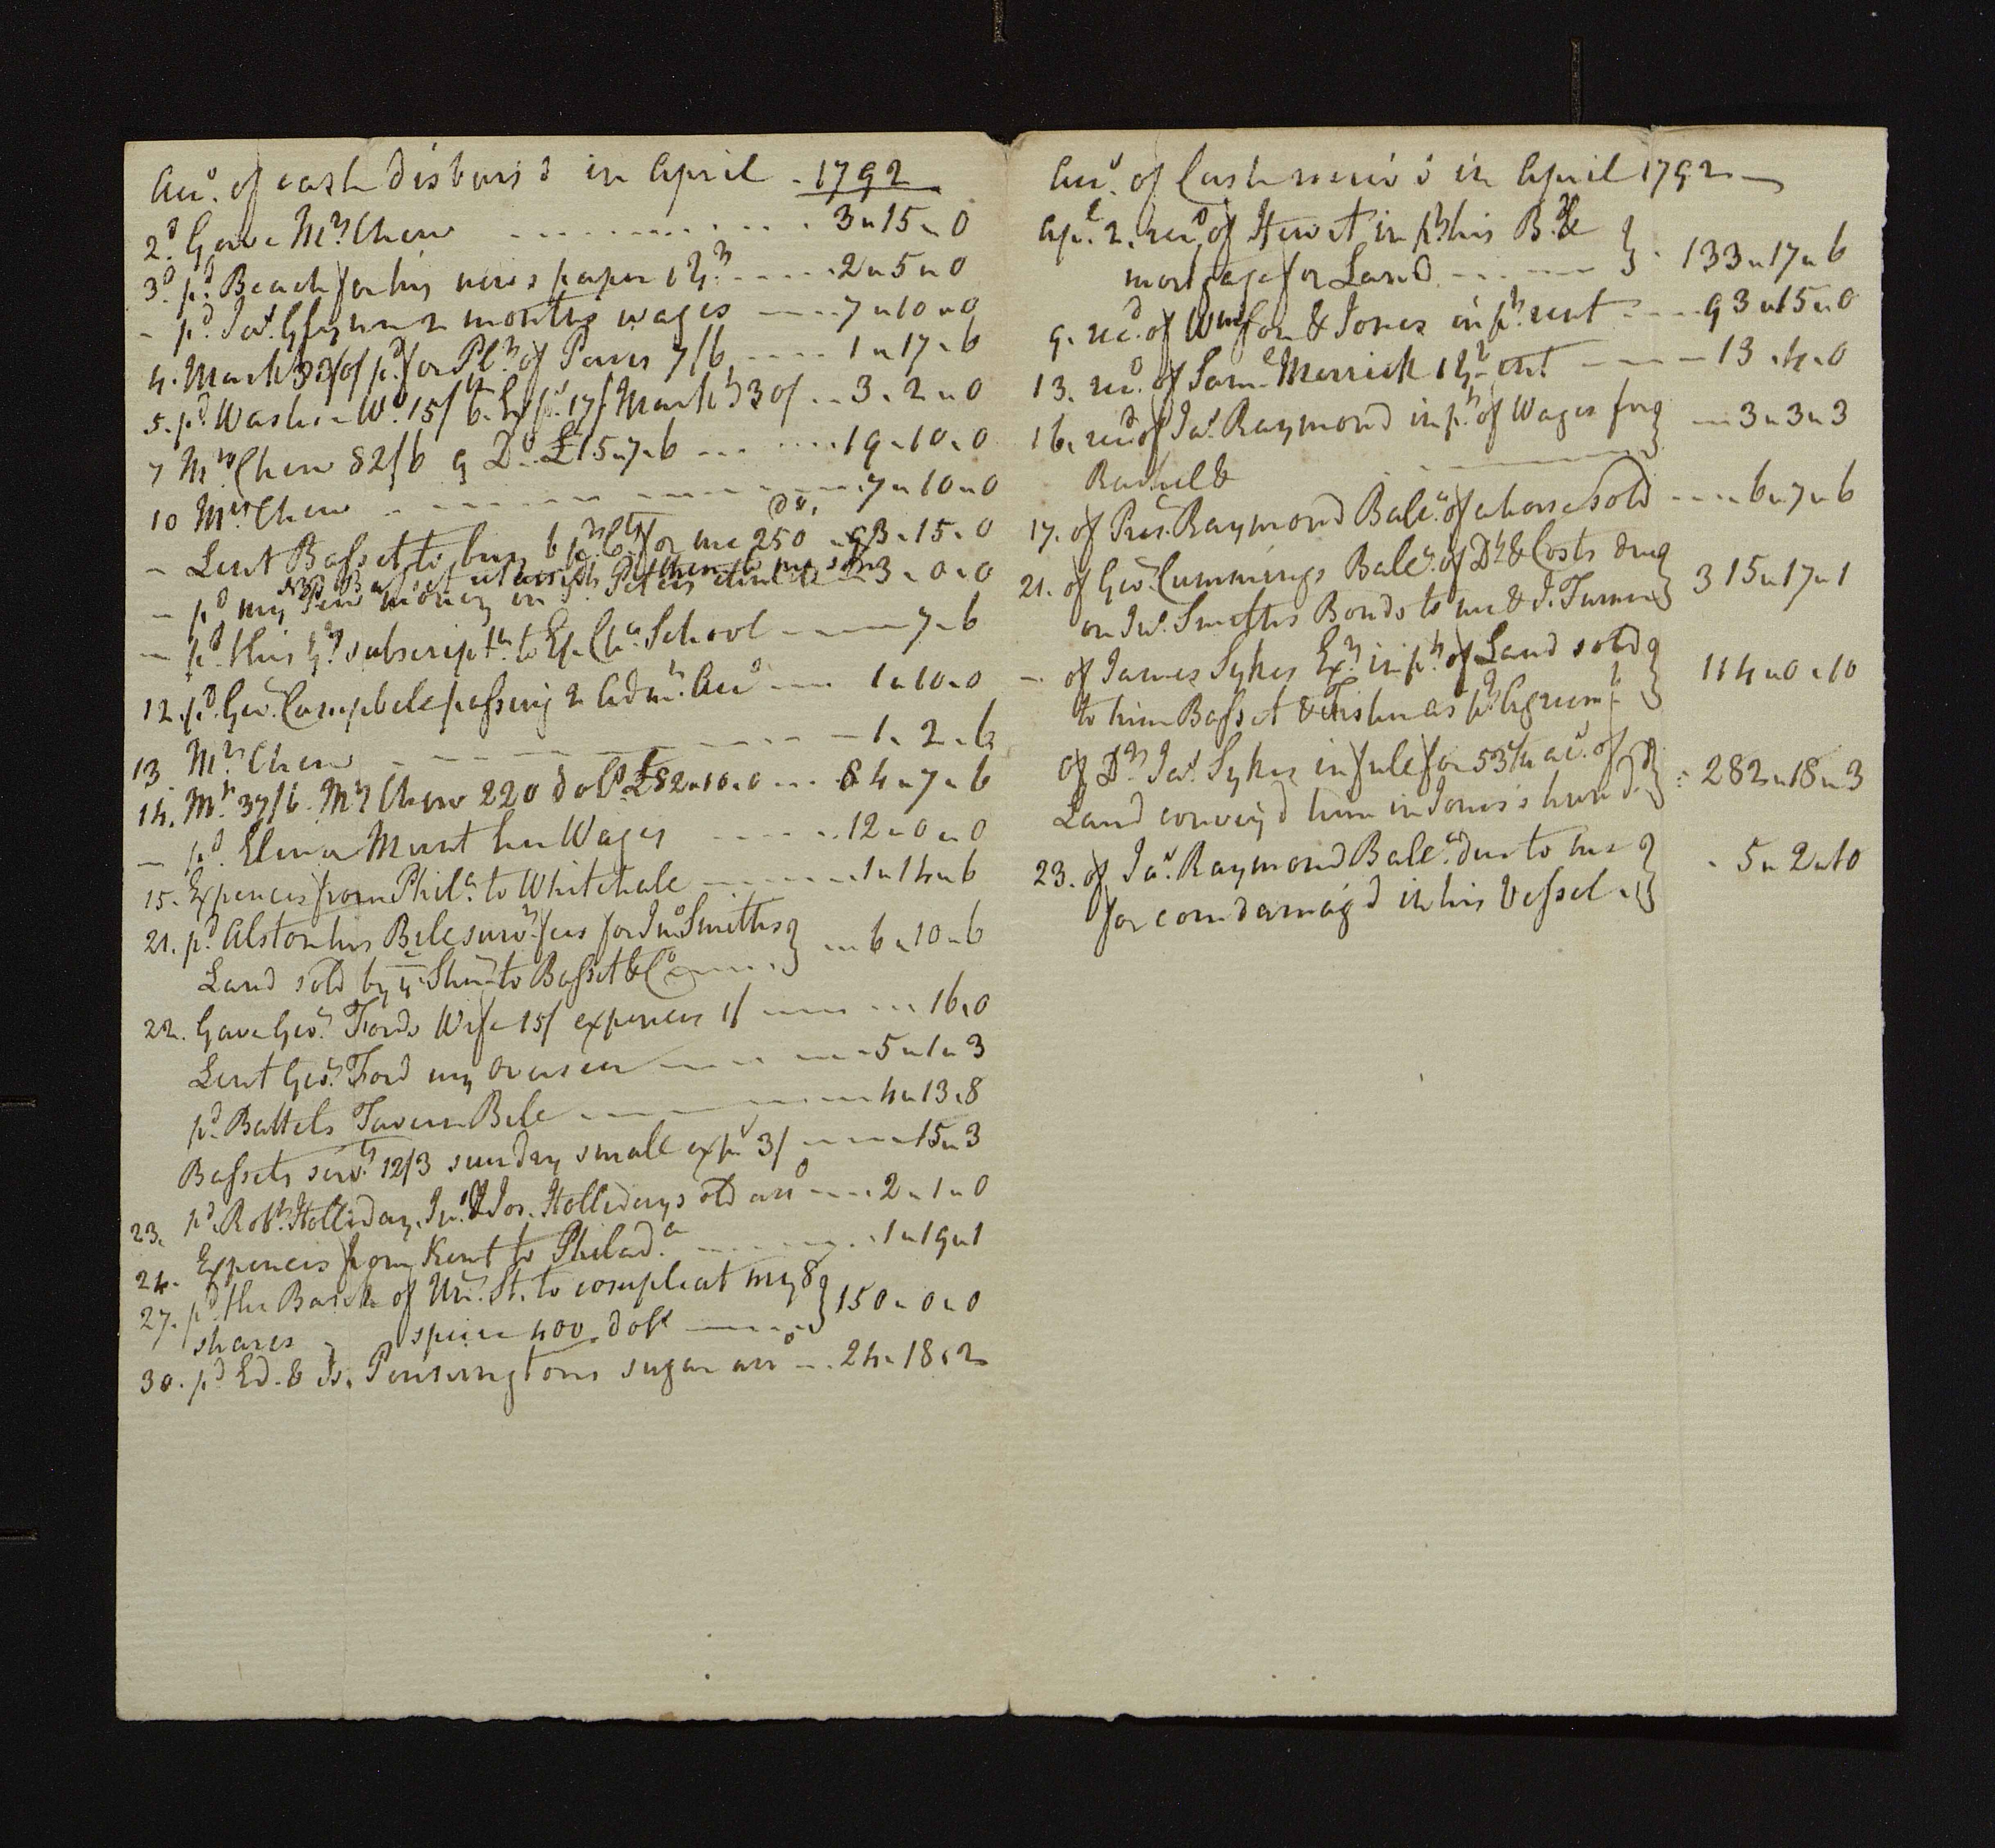 Acc.^t of cash disburs'd in April - 1792
2.^d Gave M.^rs Chew - - - 3 " 15 " 0
3.^d p.^d Beach for his news paper 1 y.^r - - - 2 " 5 " 0
- p.^d Ja.^s 2 months wages - - - 7 " 10 " 0
4. Mark.^t 30/ of p.^d for Pl.^r of Paris 7/6 - - - 1 " 17 " 6
5. p.^d Wash.^e W.^o 15/ Exp.^s 17/ Mark.^t 30/ - - 3 " 2 " 0
7 M.^rs Chew 82/6 & D.^o £15 " 7 " 6 - - - 19 " 10 " 0
10 M.^rs Chew - - - 7 " 10 " 0
- Lent Basset to buy 6 p.^r C.^ts for me 250 do.^s - 93 " 15 " 0
NB Basset
- p.^d my Pew money in S.^t Peters - 3 " 0 " 0
- p.^d this y.^rs subscript.^n to Ep. Ch.^a School - - - 7 " 6
12. p.^d Geo. Campbele passing 2 Adm.^n Acc.^ts - - - 1 " 10 " 0
13 M.^rs Chew - - - 1 " 2 " 6
14. M.^t 37/6. M.^rs Chew 220 dol.^s £82 " 10 " 0 - - - 84 " 7 " 6
- p.^d Elenor Munt her Wages - - - 12 " 0 " 0
15. Expences from Phil.^a to Whitehale - - - 1 " 14 " 6
21. p.^d Alston his Bile surv.^g fees for Jn.^o Smiths
Land sold by y.^e Sher.^f to Basset & C.^o - - - } - - 6 " 10 " 6
22. Gave Geo.^e Fords Wife 15/ expences 1/ - - - 16 " 0
Lent Geo.^e Ford my overseer - - - 5 " 1 " 3
p.^d Battels Tavern Bile - - - 4 " 13 " 8
Bassets serv.^ts 12/3 sundry smale exp.^s 3/ - - - 15 " 3
23. p.^d Rob.^t Holliday, Jn.^o & Jos. Hollidays old acc.^t - - - 2 " 1 " 0
24. Expences from Kent to Philad.^a - - - 1 " 19 " 1
27. p.^d the Bank of Un.^d St. to compleat my 8
shares - specie 400 dol.^s - - - } 150 " 0 " 0
30. p.^d Ed. & Is. Penningtons sugar acc.^t - - 24 " 18 " 2
Acc.^t of Cash receiv'd in April 1792 -
Ap.^l 2. rec.^d of Hewit in p.^t his B.^d &
mortgage for Land - - - } - 133 " 17 " 6
9. rec.^d of & Jones in p.^t rent - - - 93 " 15 " 0
13. rec.^d of Sam.^l Merrich 1 y.^rs rent - - - 13 " 4 " 0
16. rec.^d of Ja.^s Raymond in p.^t of Wages for } - - 3 " 3 " 3
Rachel &
17. of Pres. Raymond Bale.^e of a horse sold - - - 6 " 7 " 6
21. of Geo.^e Cummings Bale.^e of D.^t & Costs due
on Jn.^o Smiths Bonds to me & J. Turner } 315 " 17 " 1
- of James Sykes Ex.^r in p.^t of Land sold
to him Basset & Fisher as p.^r Agreem.^t } 114 " 0 " 10
of D.^r Ja.^s Sykes in fule for 53 3/4 ac.^s of
Land convey'd him in Jones's hund.^d } 282 " 18 " 3
23. of Ja.^s Raymond Bale.^e due to me
for corn damag'd in his Vessel - } - 5 " 2 " 10